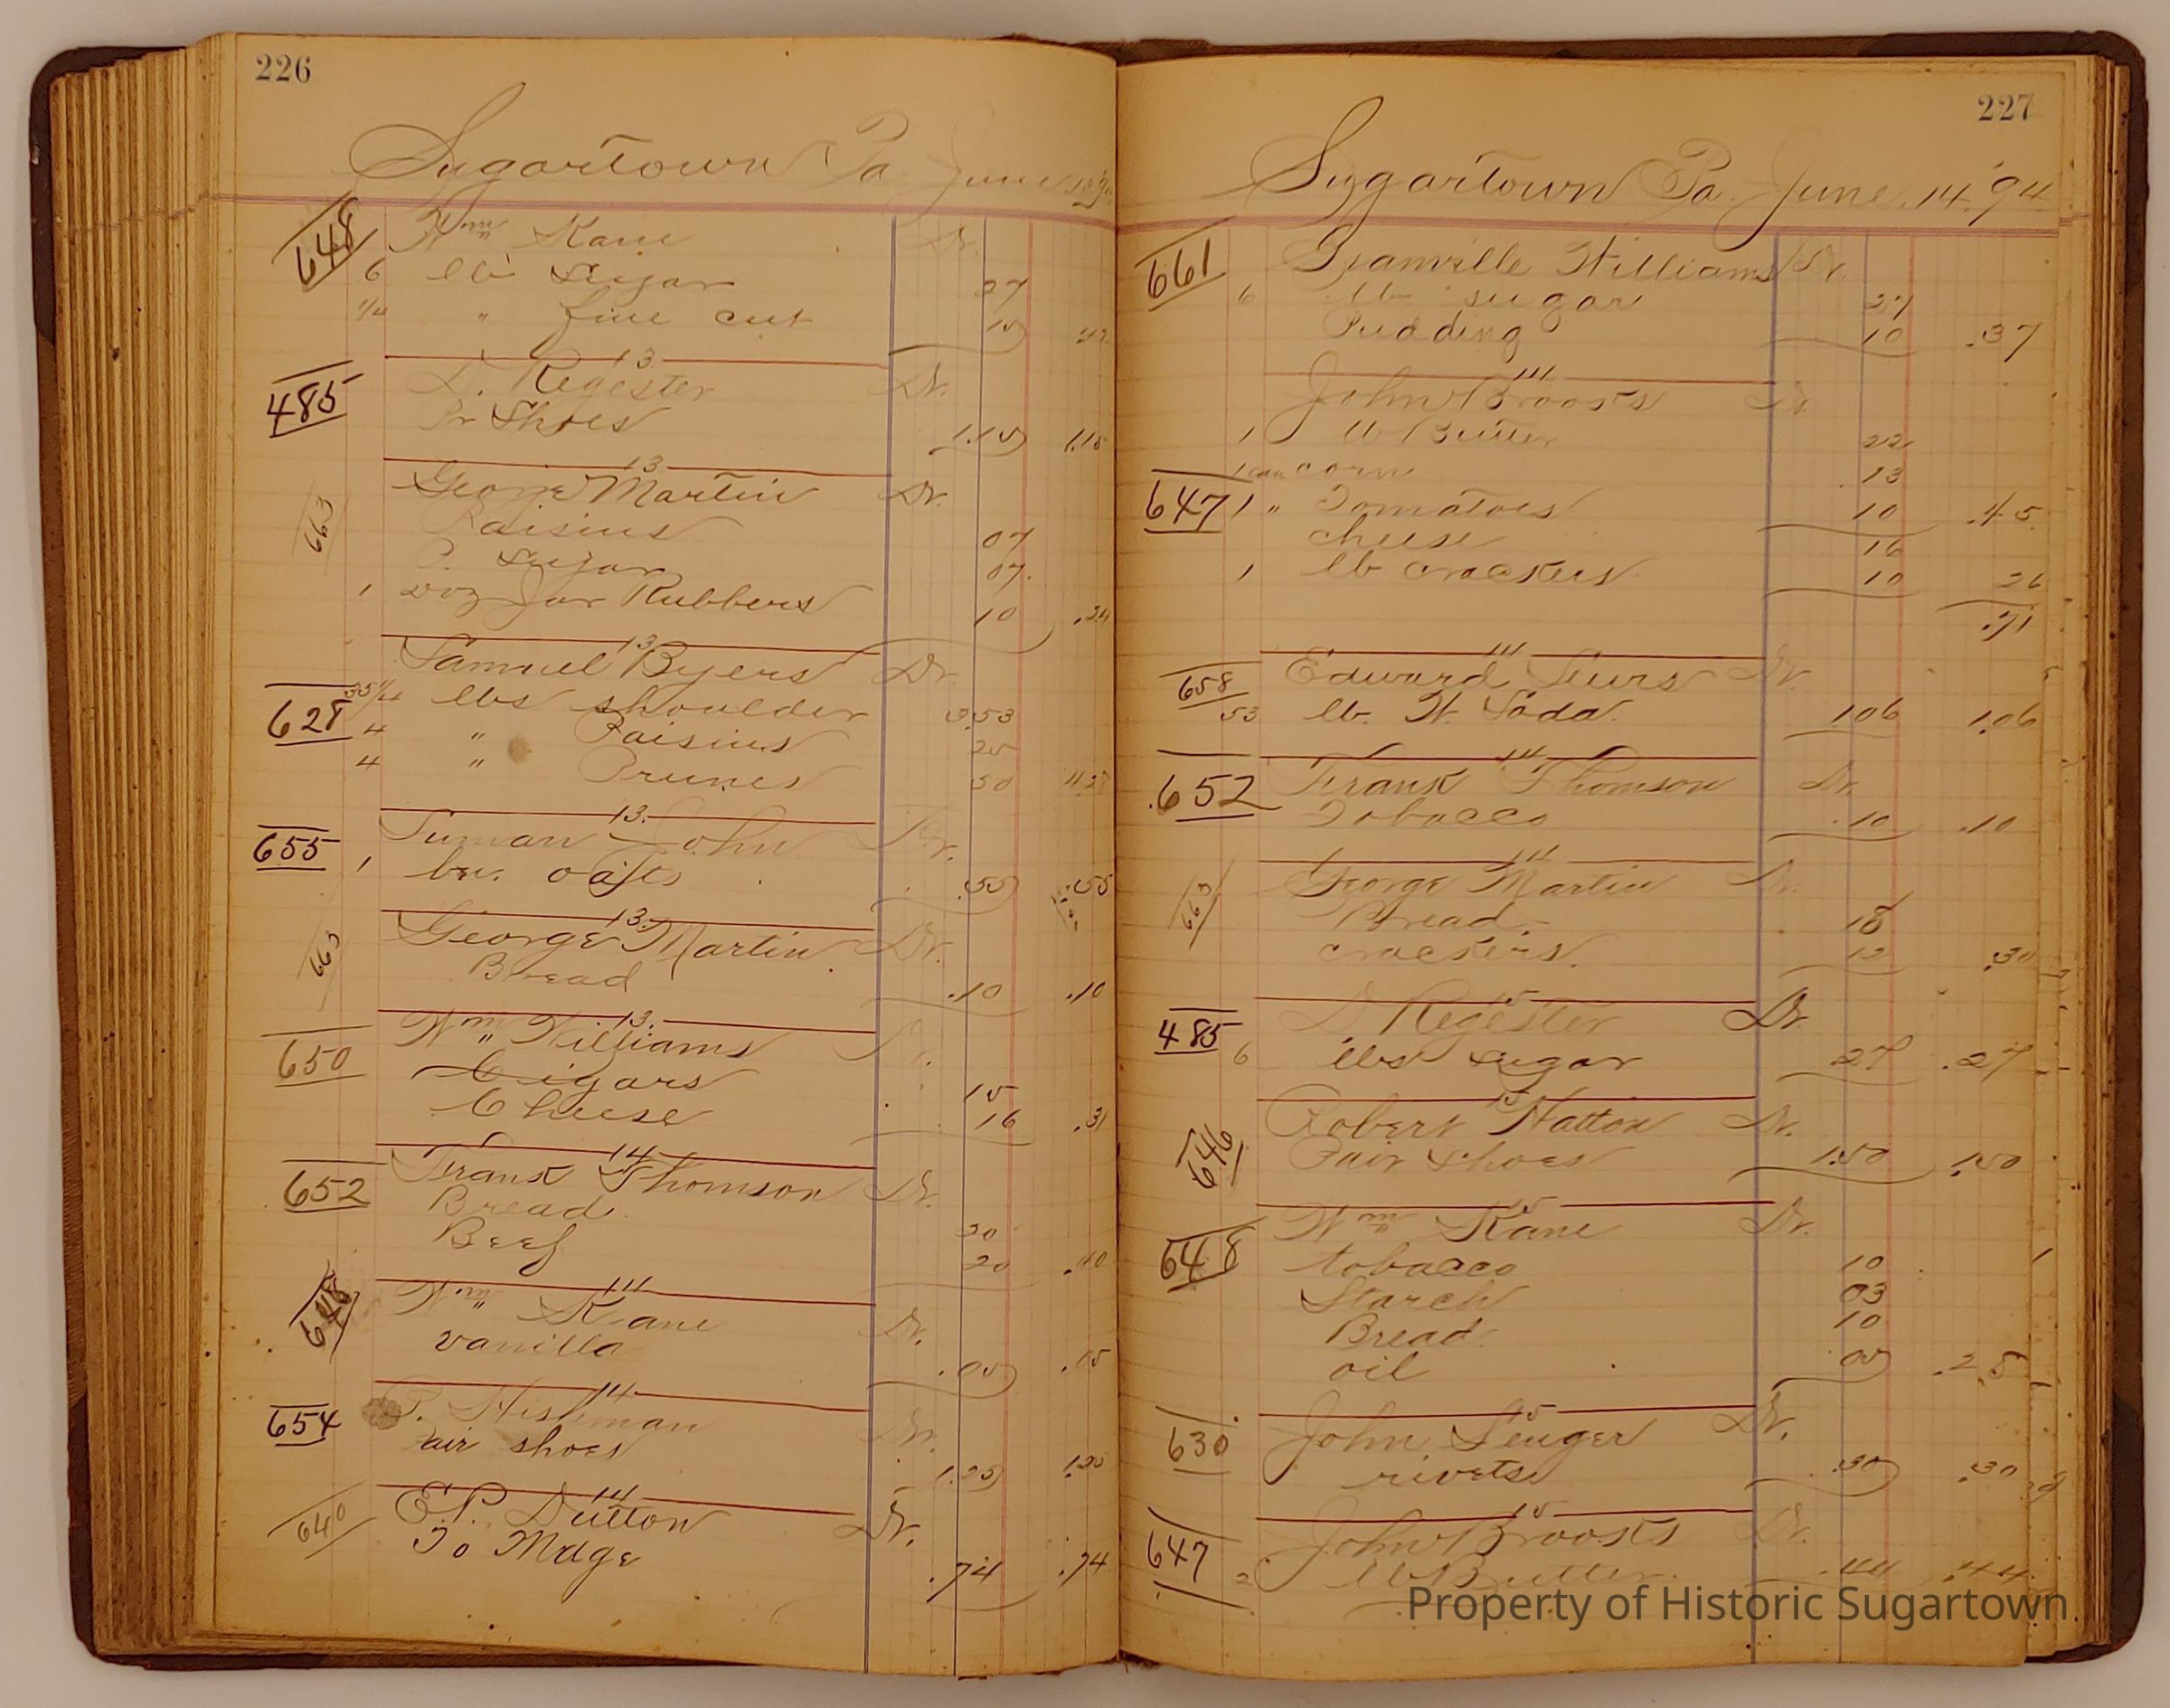 226
Sugartown Pa June 13 '94
648 Wm Kane Dr.
6 lb Sugar 27
1/4 " fine cut 15 42
13
485 D. Regester Dr.
Pr Shoes 1.15 1.15
13
663 George Martin Dr.
Raisins 07
Sugar 07.
1 Doz Jar Rubbers 10
13
Samuel Byers Dr.
628 35 1/4 lbs shoulder 3.53
4 " Raisins 25
4 " Prunes 50 4.28
13.
655 John Dr.
1 bu. oats .55 .55
13.
663 George Martin Dr.
Bread .10 .10
13.
650 Wm Williams Dr.
Cigars 15
Cheese 16 .31
14
652 Frank Thomson Dr.
Bread 20
Beef 20 .40
14
648 Wm Kane Dr.
vanilla .05 .05
14
654 P. Dr.
Pair shoes 1.25 1.25
14
640 E. P. Dutton Dr.
To Mdge .74 .74
227
Sugartown Pa. June. 14. '94
661 Granville Williams Dr.
6 lb sugar 27
Pudding 10 .37
14
John Brooks Dr.
1 lb Butter 22
1 can corn .13
647 1 " Tomatoes 10 .45
cheese 16
1 lb crackers 10 26
.71
14
658 Edward Dr.
53 lb. W. Lead. 106 1.06
14
.652 Frank Thomson Dr.
Tobacco .10 .10
14
663 George Martin Dr.
Bread 18
crackers. 12 .30
15
485 D Regester Dr
6 lbs sugar 27 .27
15
646 Robert Hatton Dr.
Pair Shoes 1.50 1.50
15
648 Wm Kane Dr.
tobacco 10
Starch 03
Bread 10
oil .05 .28
15
630 John Senger Dr.
rivets .30 .30
15
647 John Brooks Dr.
2 lb Butter. .44 .44
Property of Historic Sugartown